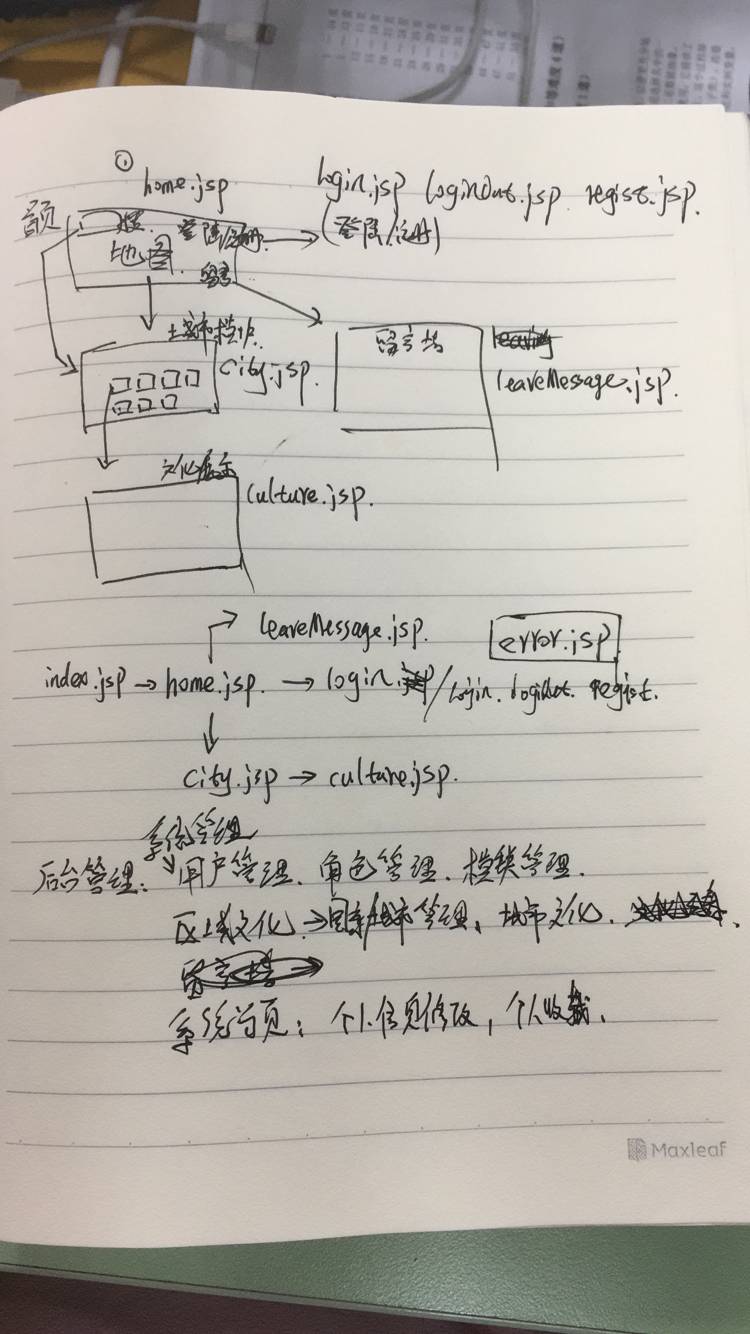 ①
home.jsp
login.jsp loginOut.jsp. regist.jsp.
(登陆/注册)
首页
登陆/注册.
地图.
留言
city.jsp.
留言墙
leaveMessage.jsp.
文化展示
culture.jsp.
leaveMessage.jsp.
error.jsp
index.jsp → home.jsp. → login. / login. logOut. regist.
city.jsp → culture.jsp.
系统管理
后台管理: 用户管理、角色管理、模块管理.
区域文化 → 国家/城市管理、城市文化.
系统首页: 个人信息修改, 个人收藏.
Maxleaf